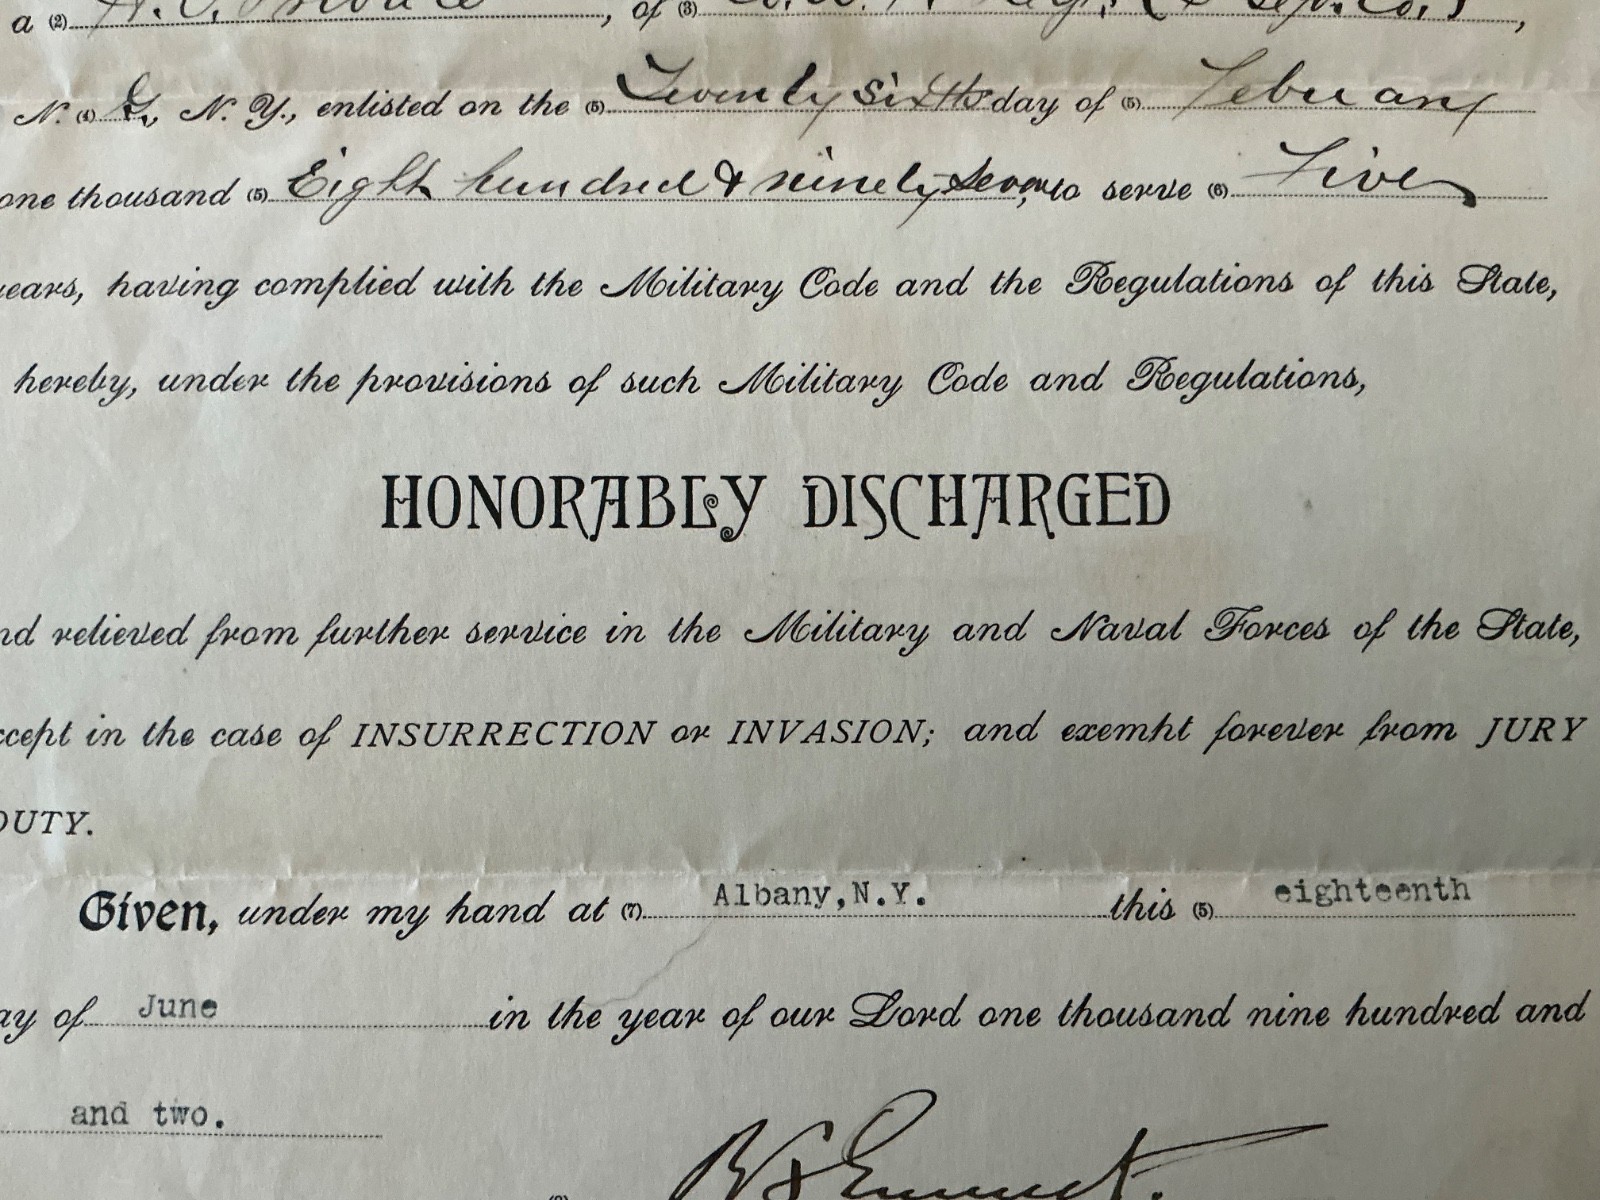 a (2) , of (3) ,
N. (4) G., N. Y., enlisted on the (5) Twenty Sixth day of (5) February
one thousand (5) Eight hundred & ninety seven, to serve (6) Five
years, having complied with the Military Code and the Regulations of this State,
hereby, under the provisions of such Military Code and Regulations,
HONORABLY DISCHARGED
nd relieved from further service in the Military and Naval Forces of the State,
ccept in the case of INSURRECTION or INVASION; and exempt forever from JURY
DUTY.
Given, under my hand at (7) Albany,N.Y. this (5) eighteenth
ay of June in the year of our Lord one thousand nine hundred and
and two.